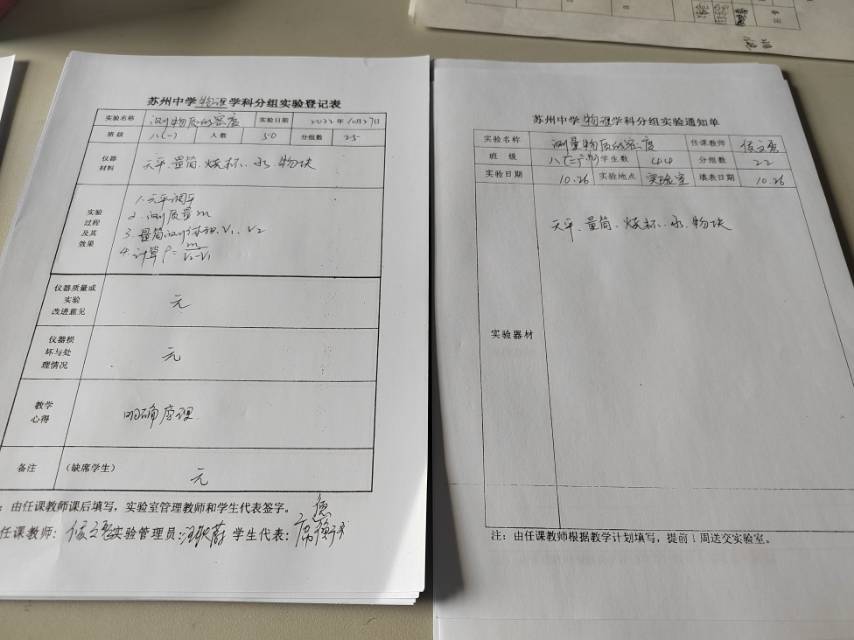 苏州中学物理学科分组实验登记表
实验名称 测物质的密度 实验日期 2022年10月27日
班级 八(一) 人数 50 分组数 25
仪器材料 天平、量筒、烧杯、水、物块
实验过程及其效果
1.天平调平
2.测质量m
3.量筒测体积V1、V2
4.计算ρ=m/(V2-V1)
仪器质量或实验改进意见 无
仪器损坏与处理情况 无
教学心得 明确原理
备注 (缺席学生) 无
：由任课教师课后填写，实验室管理教师和学生代表签字。
任课教师： 实验管理员： 学生代表：
苏州中学物理学科分组实验通知单
实验名称 测量物质的密度 任课教师
班级 学生数 44 分组数 22
实验日期 10.26 实验地点 实验室 填表日期 10.26
实验器材 天平、量筒、烧杯、水、物块
注：由任课教师根据教学计划填写，提前1周送交实验室。